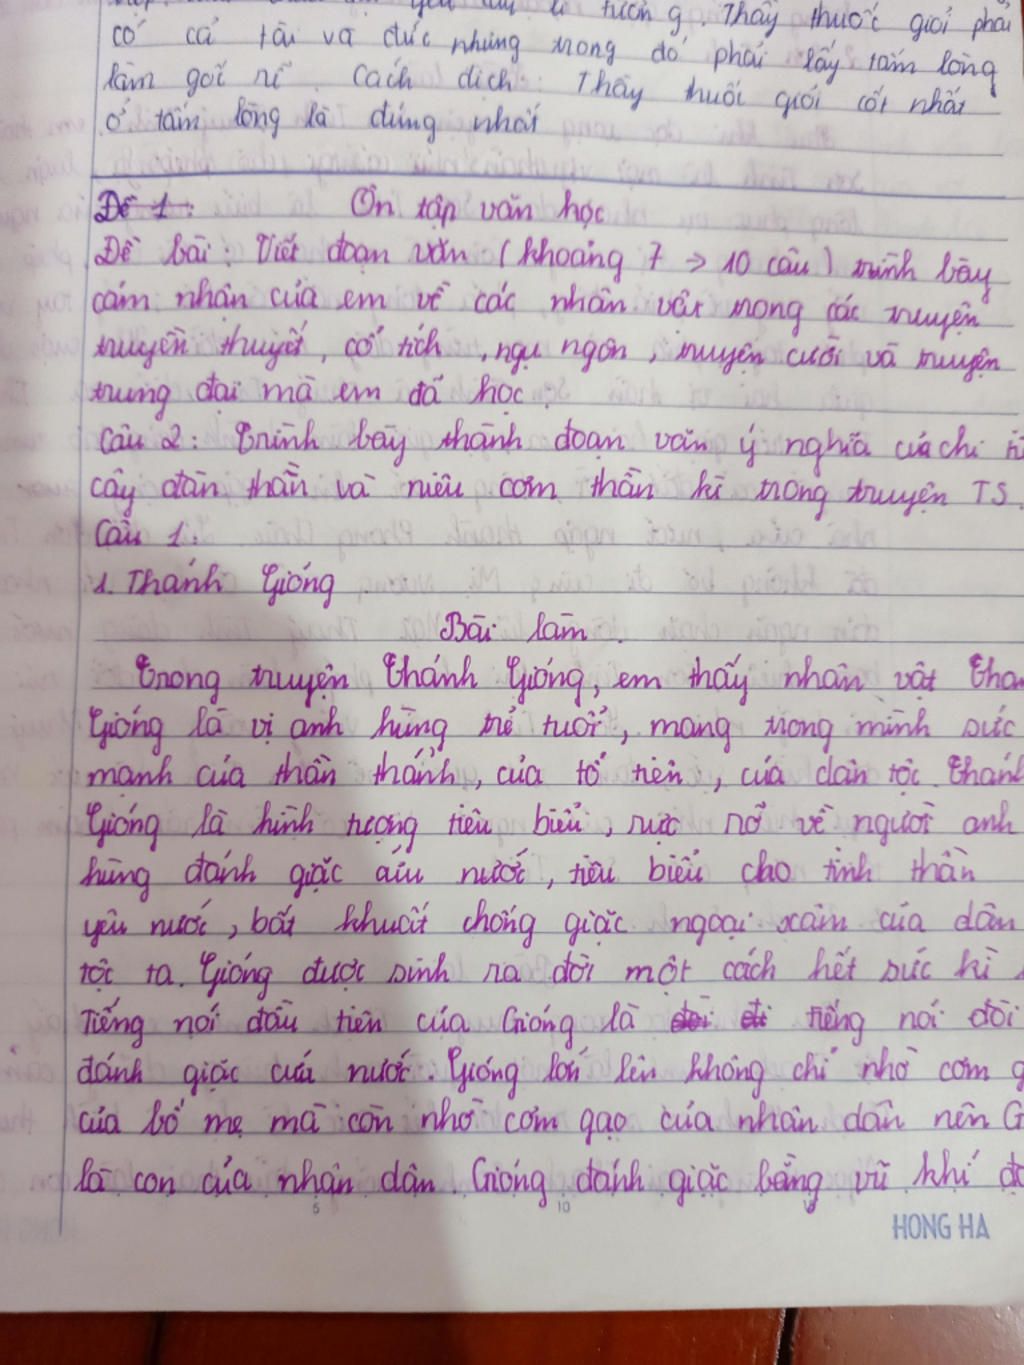 tượng. Thầy thuốc giỏi phải
có cả tài và đức nhưng trong đó phải lấy tấm lòng
làm gốc rễ. Cách dịch: Thầy thuốc giỏi cốt nhất
ở tấm lòng là đúng nhất
Đề 1: Ôn tập văn học
Đề bài: Viết đoạn văn (khoảng 7 → 10 câu) trình bày
cảm nhận của em về các nhân vật trong các truyện
truyền thuyết, cổ tích, ngụ ngôn, truyện cười và truyện
trung đại mà em đã học.
Câu 2: Trình bày thành đoạn văn ý nghĩa của chi
cây đàn thần và niêu cơm thần kì trong truyện TS.
Câu 1:
1. Thánh Gióng
Bài làm
Trong truyện Thánh Gióng, em thấy nhân vật
Gióng là vị anh hùng trẻ tuổi, mang trong mình sức
mạnh của thần thánh, của tổ tiên, của dân tộc.
Gióng là hình tượng tiêu biểu, rực rỡ về người anh
hùng đánh giặc cứu nước, tiêu biểu cho tinh thần
yêu nước, bất khuất chống giặc ngoại xâm của dân
tộc ta. Gióng được sinh ra đời một cách hết sức kì
Tiếng nói đầu tiên của Gióng là tiếng nói đòi
đánh giặc cứu nước. Gióng lớn lên không chỉ nhờ cơm
của bố mẹ mà còn nhờ cơm gạo của nhân dân nên
là con của nhân dân. Gióng đánh giặc bằng vũ khí
5 10
HONG HA